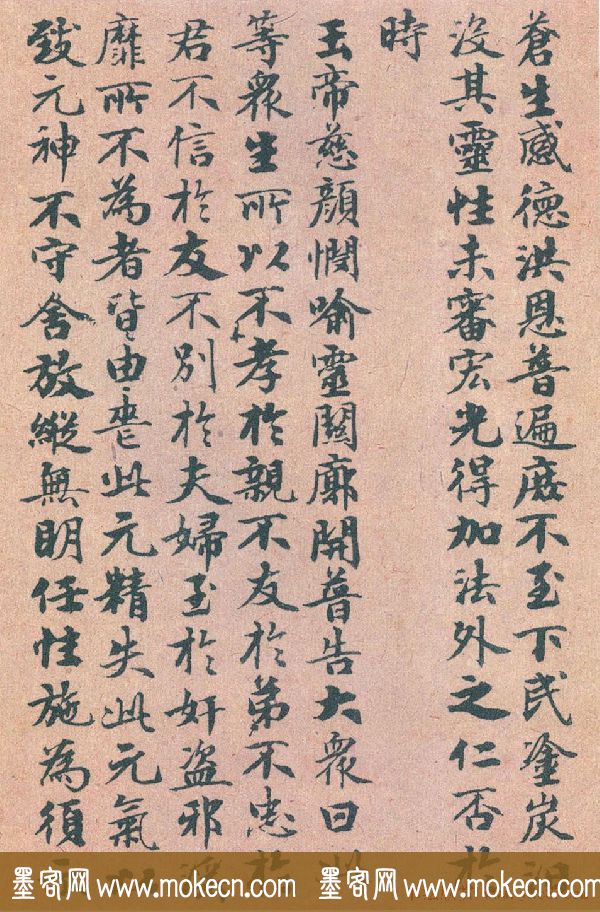 蒼生感德洪恩普遍靡不至下民塗炭
沒其靈性未審宏光得加法外之仁否於
時
玉帝慈顏憫喻靈關廓開普告大衆曰
等衆生所以不孝於親不友於弟不忠於
君不信於友不別於夫婦至於奸盜邪淫
靡所不為者皆由喪此元精失此元氣以
致元神不守舍放縱無明任性施為須
墨客网 www.mokecn.com 墨客网 www.mokecn.com